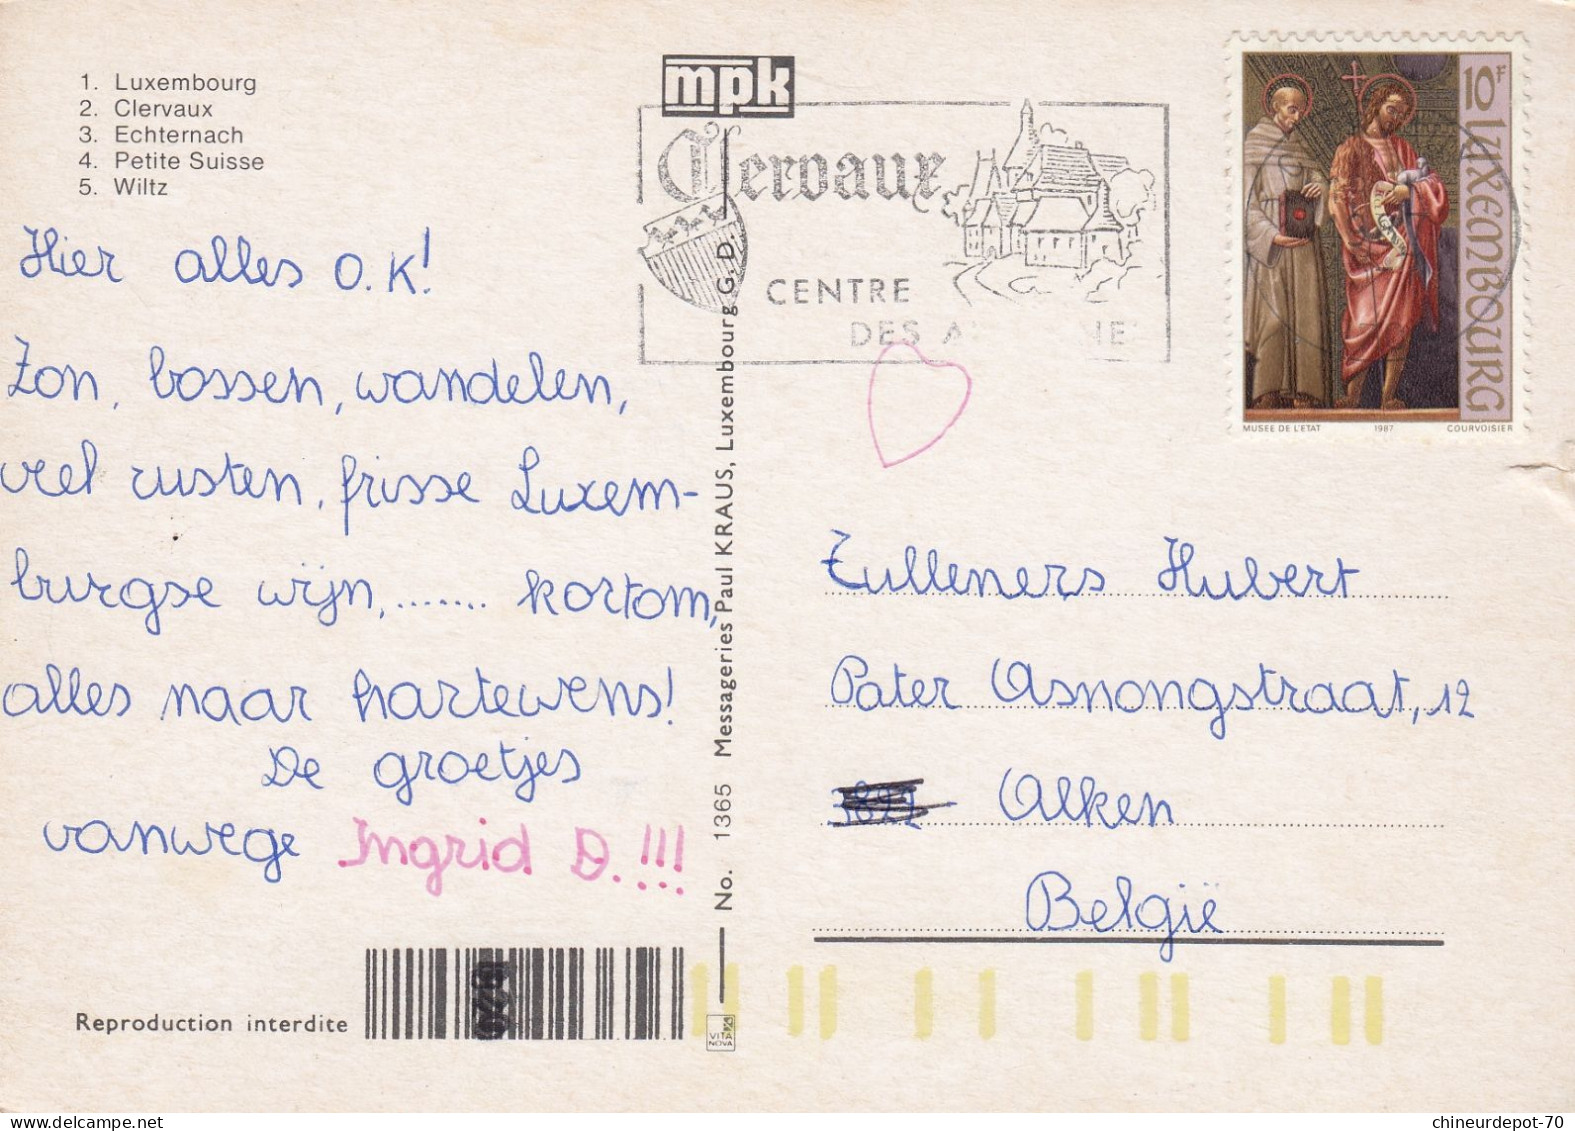 1. Luxembourg
2. Clervaux
3. Echternach
4. Petite Suisse
5. Wiltz
Hier alles O.K!
Zon, bossen, wandelen,
veel rusten, frisse Luxem-
burgse wijn, ....... kortom,
alles naar hartewens!
De groetjes
vanwege Ingrid D.!!!
Reproduction interdite
mpk
No. 1365 Messageries Paul KRAUS, Luxembourg G. D.
VITA
NOVA
Clervaux
CENTRE
DES
10F LUXEMBOURG
MUSEE DE L'ETAT 1987 COURVOISIER
Zulleners Hubert
Pater Asnongstraat, 12
Alken
België
chineurdepot-70